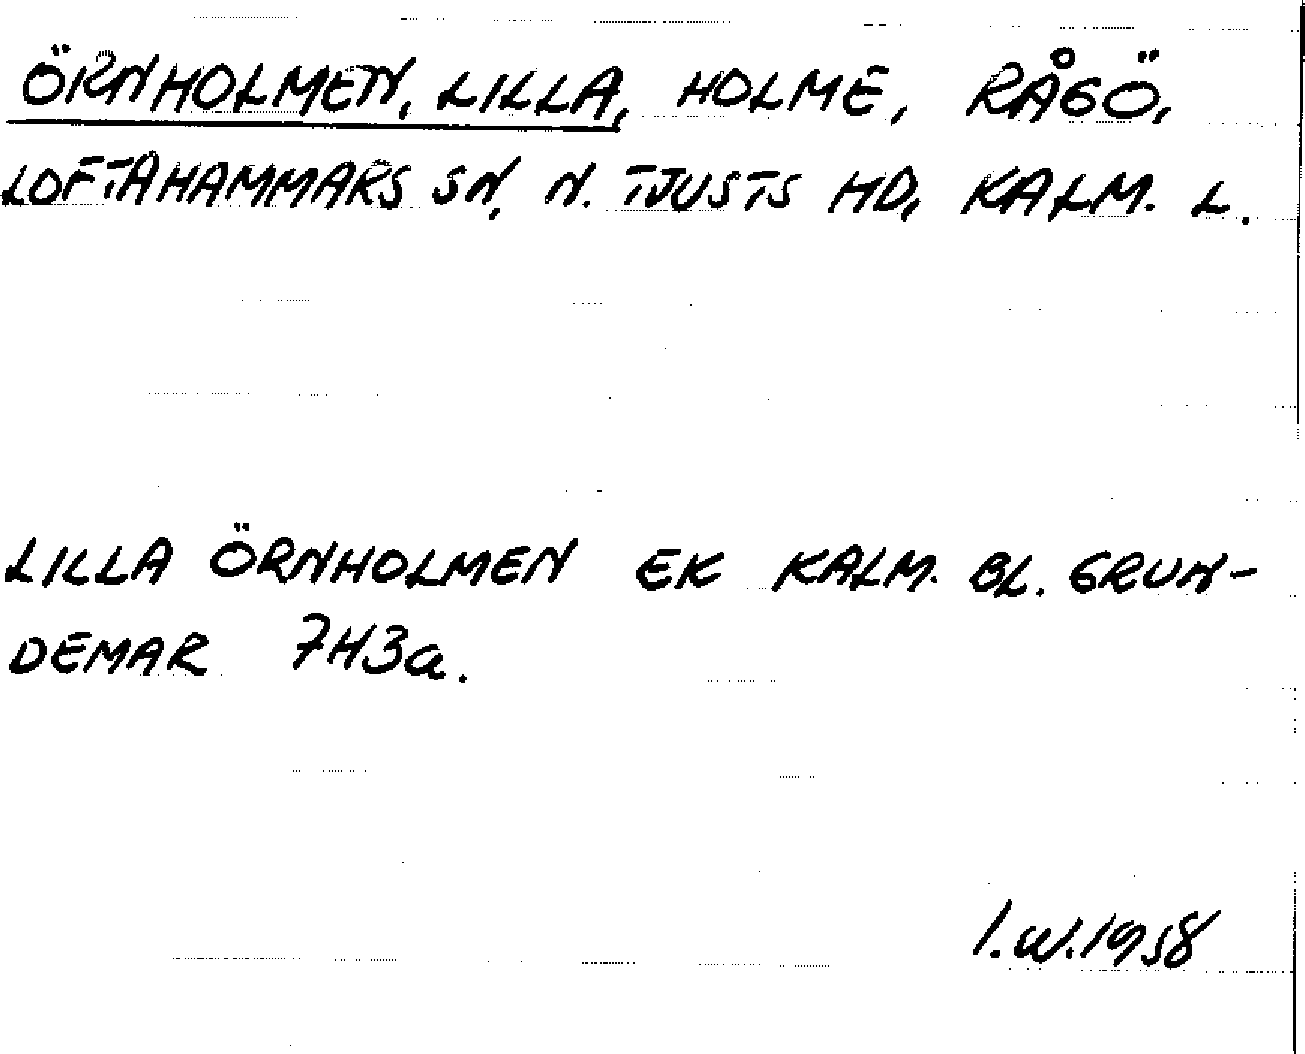 ÖRNHOLMEN, LILLA, HOLME, RÅGÖ,
LOFTAHAMMARS SN, N. TJUSTS HD, KALM. L.
LILLA ÖRNHOLMEN EK KALM. BL. GRUN-
DEMAR 7H3a.
I.W.1958